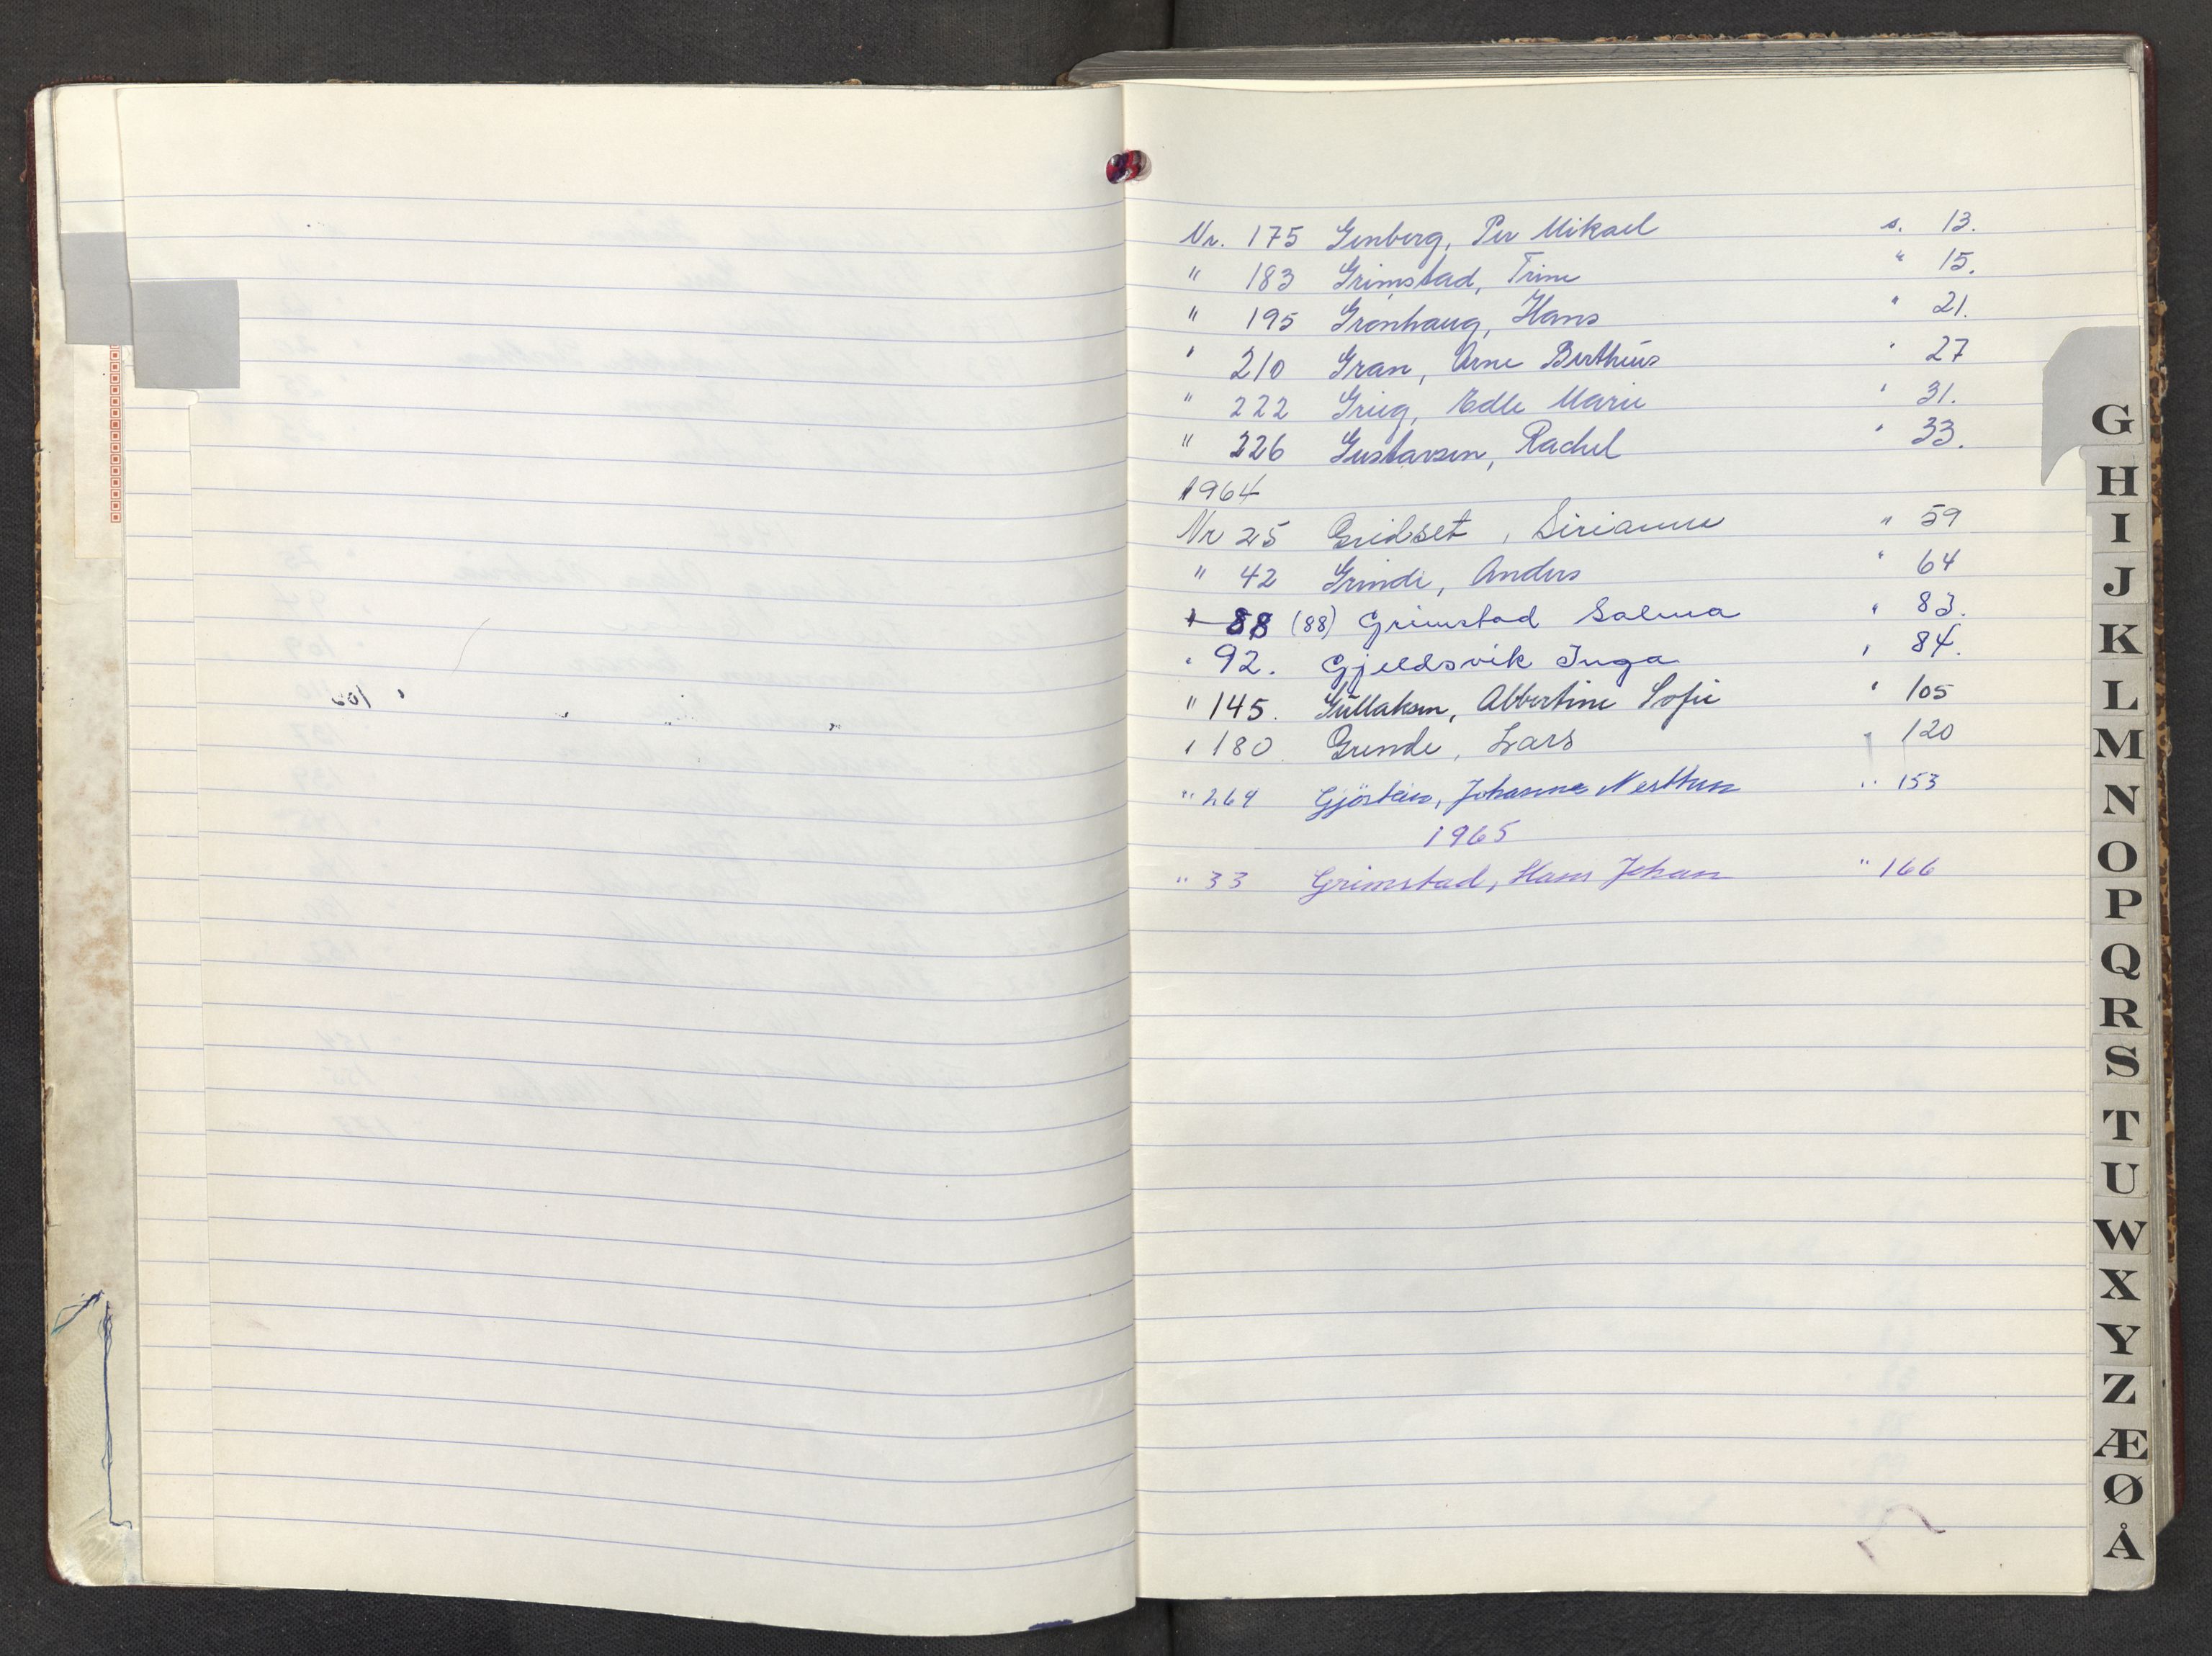 Nr. 175 Genberg, Per Mikael s. 13.
" 183 Grimstad, Trine " 15.
" 195 Grønhaug, Hans " 21.
" 210 Gran, Arne Bertheus " 27
" 222 Grieg, Edle Marie " 31.
" 226 Gustavsen, Rachel " 33.
1964
Nr 25 Gridset, Sirianne " 59
" 42 Grinde, Anders " 64
" 88 (88) Grimstad Salma " 83.
" 92. Gjeldsvik Inga " 84.
" 145. Gullaksen, Albertine Sofie " 105
" 180 Grinde, Lars " 120
" 264 Gjöstein, Johanne Nesttun " 153
1965
" 33 Grimstad, Hans Johan " 166
G
H
I
J
K
L
M
N
O
P
Q
R
S
T
U
W
X
Y
Z
Æ
Ø
Å